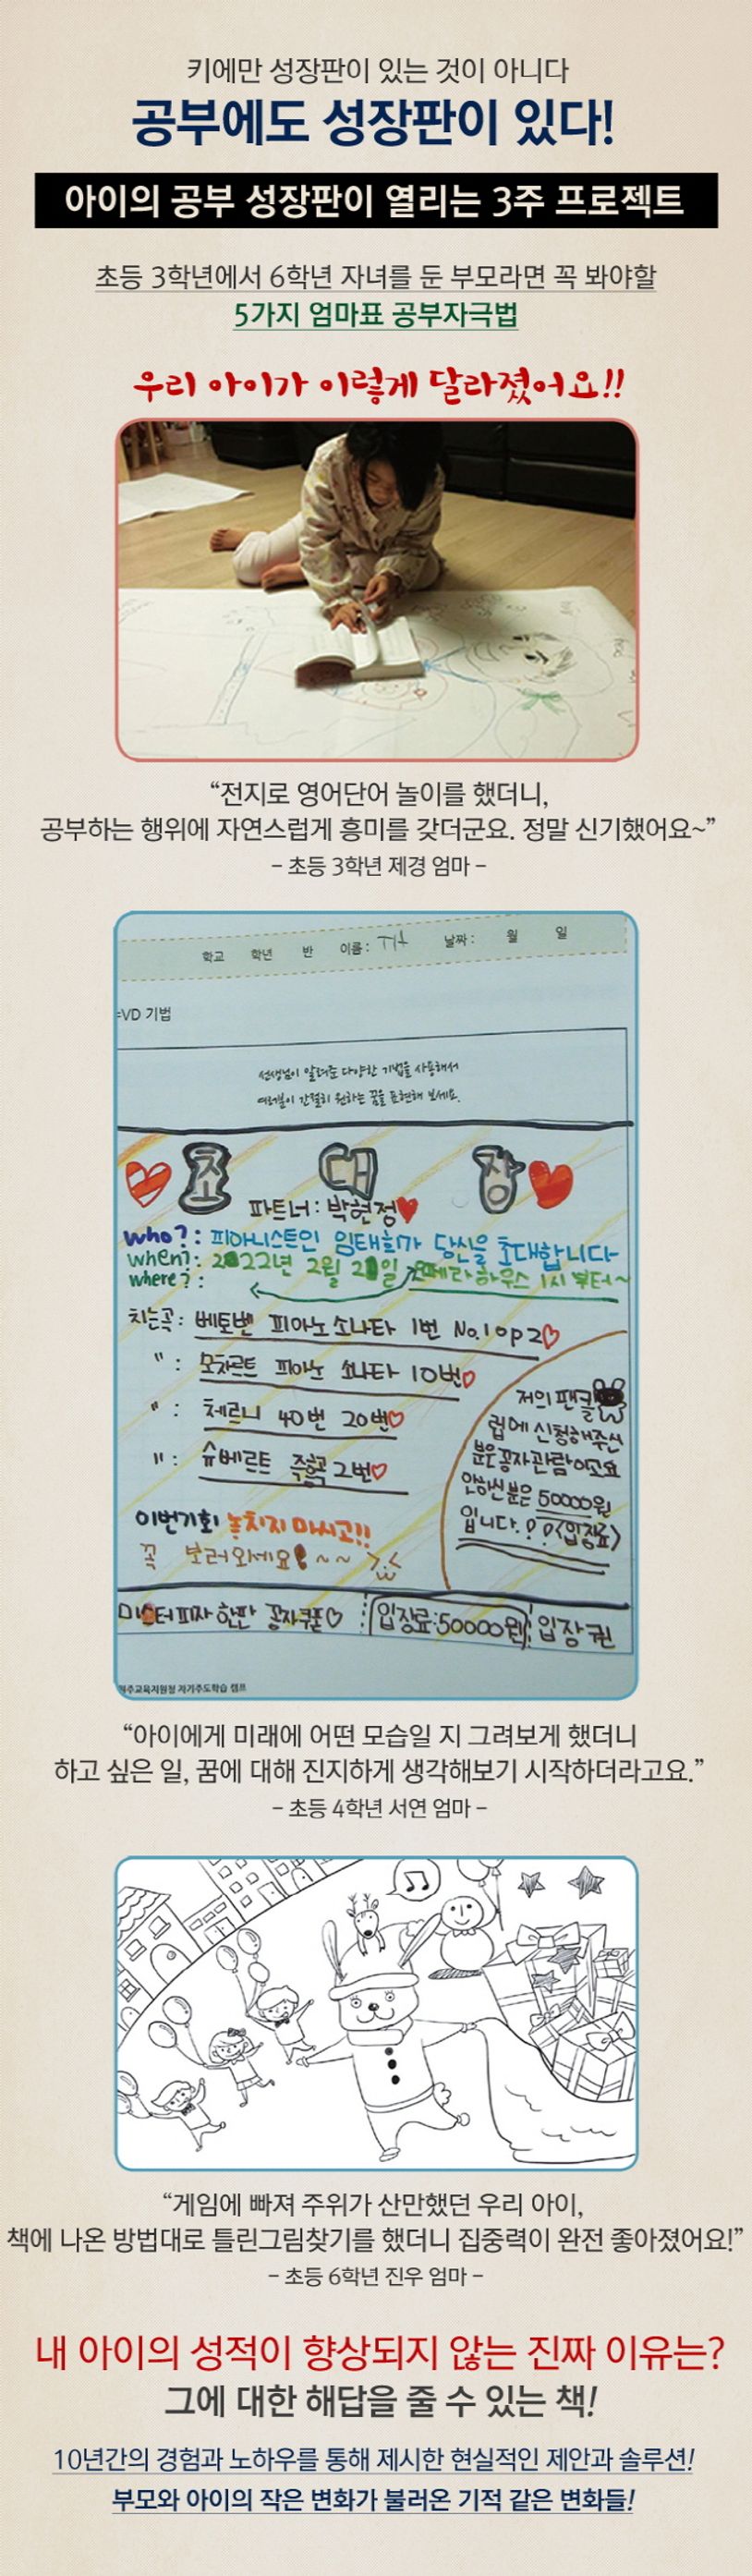 키에만 성장판이 있는 것이 아니다
공부에도 성장판이 있다!
아이의 공부 성장판이 열리는 3주 프로젝트
초등 3학년에서 6학년 자녀를 둔 부모라면 꼭 봐야할
5가지 엄마표 공부자극법
우리 아이가 이렇게 달라졌어요!!
“전지로 영어단어 놀이를 했더니,
공부하는 행위에 자연스럽게 흥미를 갖더군요. 정말 신기했어요~”
- 초등 3학년 제경 엄마 -
학교 학년 반 이름 : 날짜 : 월 일
=VD 기법
선생님이 알려준 다양한 기법을 사용해서
여러분이 간절히 원하는 꿈을 표현해 보세요.
초 대 장
파트너 : 박현정
who? : 피아니스트인 임태희가 당신을 초대합니다
when? : 2022년 2월 20일 오페라하우스 1시 부터~
where? :
치는곡 : 베토벤 피아노 소나타 1번 No.1 op 2
" : 모차르트 피아노 소나타 10번
" : 체르니 40번 20번
" : 슈베르트 즉흥곡 2번
저의 팬클
럽에 신청해주신
분은 공짜관람이고요
안하신 분은 50000원
입니다.?? (입장료)
이번기회 놓치지 마시고!!
꼭 보러오세요!~~
미스터피자 한판 공짜쿠폰 입장료:50000원 입장권
교육지원청 자기주도학습 캠프
“아이에게 미래에 어떤 모습일 지 그려보게 했더니
하고 싶은 일, 꿈에 대해 진지하게 생각해보기 시작하더라고요.”
- 초등 4학년 서연 엄마 -
“게임에 빠져 주위가 산만했던 우리 아이,
책에 나온 방법대로 틀린그림찾기를 했더니 집중력이 완전 좋아졌어요!”
- 초등 6학년 진우 엄마 -
내 아이의 성적이 향상되지 않는 진짜 이유는?
그에 대한 해답을 줄 수 있는 책!
10년간의 경험과 노하우를 통해 제시한 현실적인 제안과 솔루션!
부모와 아이의 작은 변화가 불러온 기적 같은 변화들!